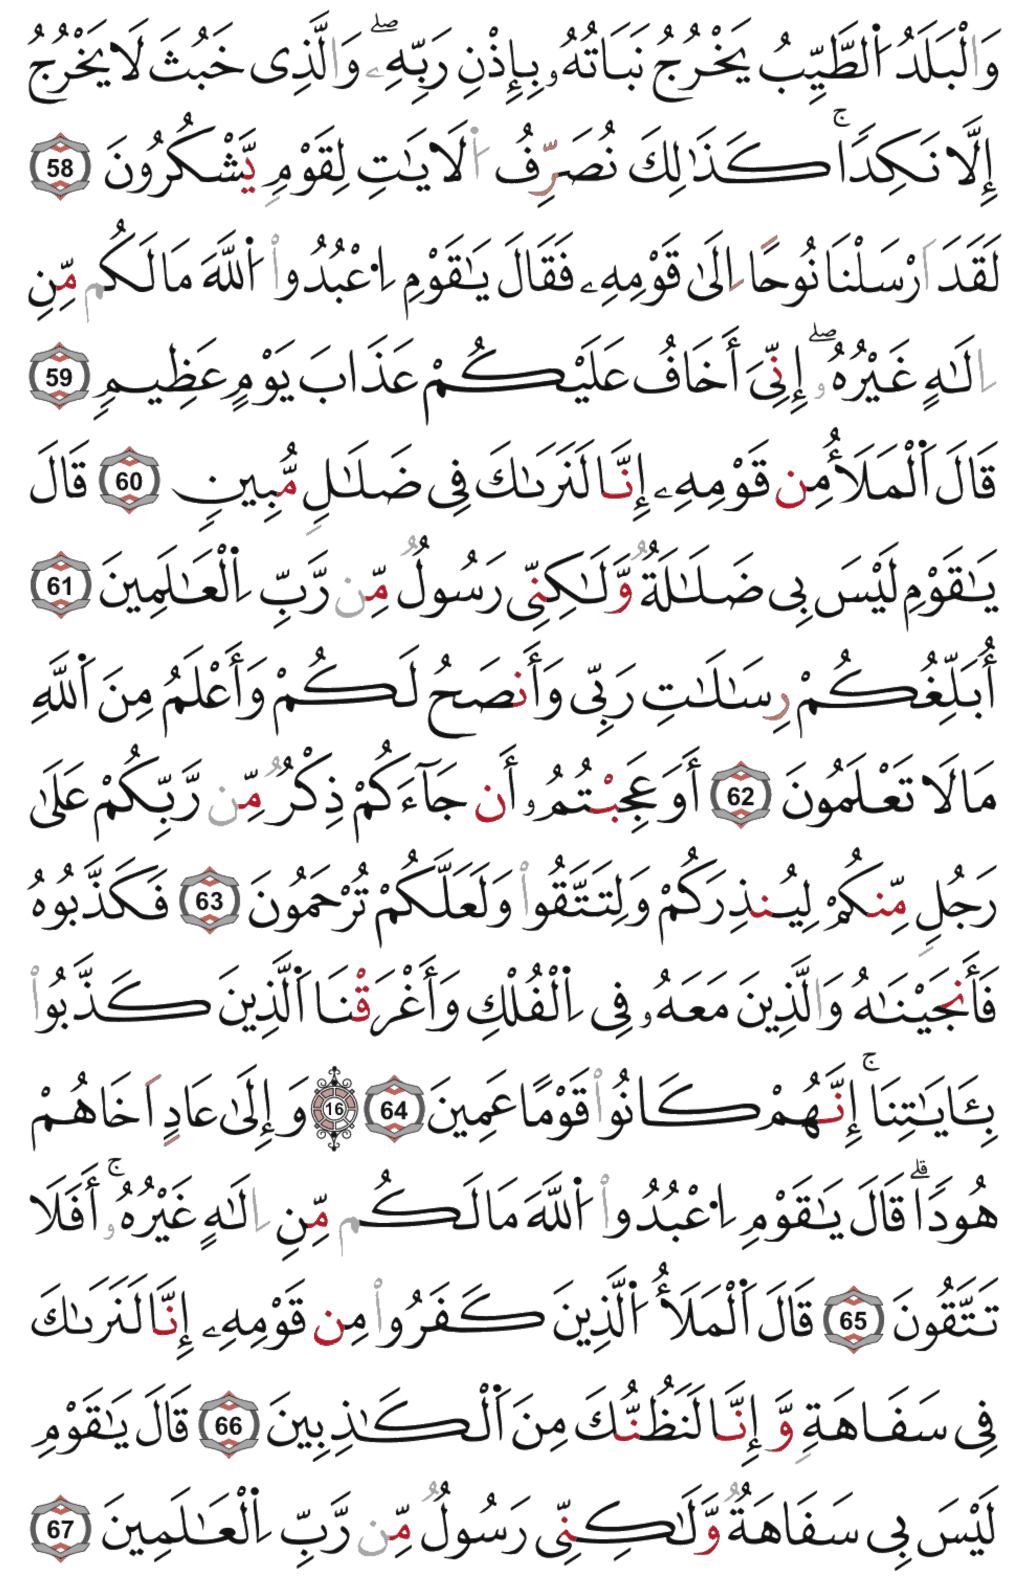 وَالْبَلَدُ اُ۬لطَّيِّبُ يَخْرُجُ نَبَاتُهُۥ بِإِذْنِ رَبِّهِۦۖ وَالَّذِى خَبُثَ لَا يَخْرُجُ
إِلَّا نَكِدًاۚ كَذَٰلِكَ نُصَرِّفُ اُ۬لَايَٰتِ لِقَوْمٍ يَّشْكُرُونَ 58
لَقَدَ اَرْسَلْنَا نُوحًا اِلَىٰ قَوْمِهِۦ فَقَالَ يَٰقَوْمِ اِ۟عْبُدُواْ اُ۬للَّهَ مَا لَكُم مِّنِ
اِلَٰهٍ غَيْرُهُۥۖ إِنِّىَ أَخَافُ عَلَيْكُمْ عَذَابَ يَوْمٍ عَظِيمٍ 59
قَالَ اَ۬لْمَلَأُ مِن قَوْمِهِۦ إِنَّا لَنَرَىٰكَ فِى ضَلَٰلٍ مُّبِينٍ 60 قَالَ
يَٰقَوْمِ لَيْسَ بِى ضَلَٰلَةٌ وَّلَٰكِنِّى رَسُولٌ مِّن رَّبِّ اِ۬لْعَٰلَمِينَ 61
أُبَلِّغُكُمْ رِسَٰلَٰتِ رَبِّى وَأَنصَحُ لَكُمْ وَأَعْلَمُ مِنَ اَ۬للَّهِ
مَا لَا تَعْلَمُونَ 62 أَوَعَجِبْتُمُۥ أَن جَآءَكُمْ ذِكْرٌ مِّن رَّبِّكُمْ عَلَىٰ
رَجُلٍ مِّنكُمْ لِيُنذِرَكُمْ وَلِتَتَّقُواْ وَلَعَلَّكُمْ تُرْحَمُونَ 63 فَكَذَّبُوهُ
فَأَنجَيْنَٰهُ وَالَّذِينَ مَعَهُۥ فِى اِ۬لْفُلْكِ وَأَغْرَقْنَا اَ۬لَّذِينَ كَذَّبُواْ
بِـَٔايَٰتِنَاۚ إِنَّهُمْ كَانُواْ قَوْمًا عَمِينَ 64 16 وَإِلَىٰ عَادٍ اَخَاهُمْ
هُودًاۗ قَالَ يَٰقَوْمِ اِ۟عْبُدُواْ اُ۬للَّهَ مَا لَكُم مِّنِ اِلَٰهٍ غَيْرُهُۥۚ أَفَلَا
تَتَّقُونَ 65 قَالَ اَ۬لْمَلَأُ اُ۬لَّذِينَ كَفَرُواْ مِن قَوْمِهِۦ إِنَّا لَنَرَىٰكَ
فِى سَفَاهَةٍ وَّإِنَّا لَنَظُنُّكَ مِنَ اَ۬لْكَٰذِبِينَ 66 قَالَ يَٰقَوْمِ
لَيْسَ بِى سَفَاهَةٌ وَّلَٰكِنِّى رَسُولٌ مِّن رَّبِّ اِ۬لْعَٰلَمِينَ 67